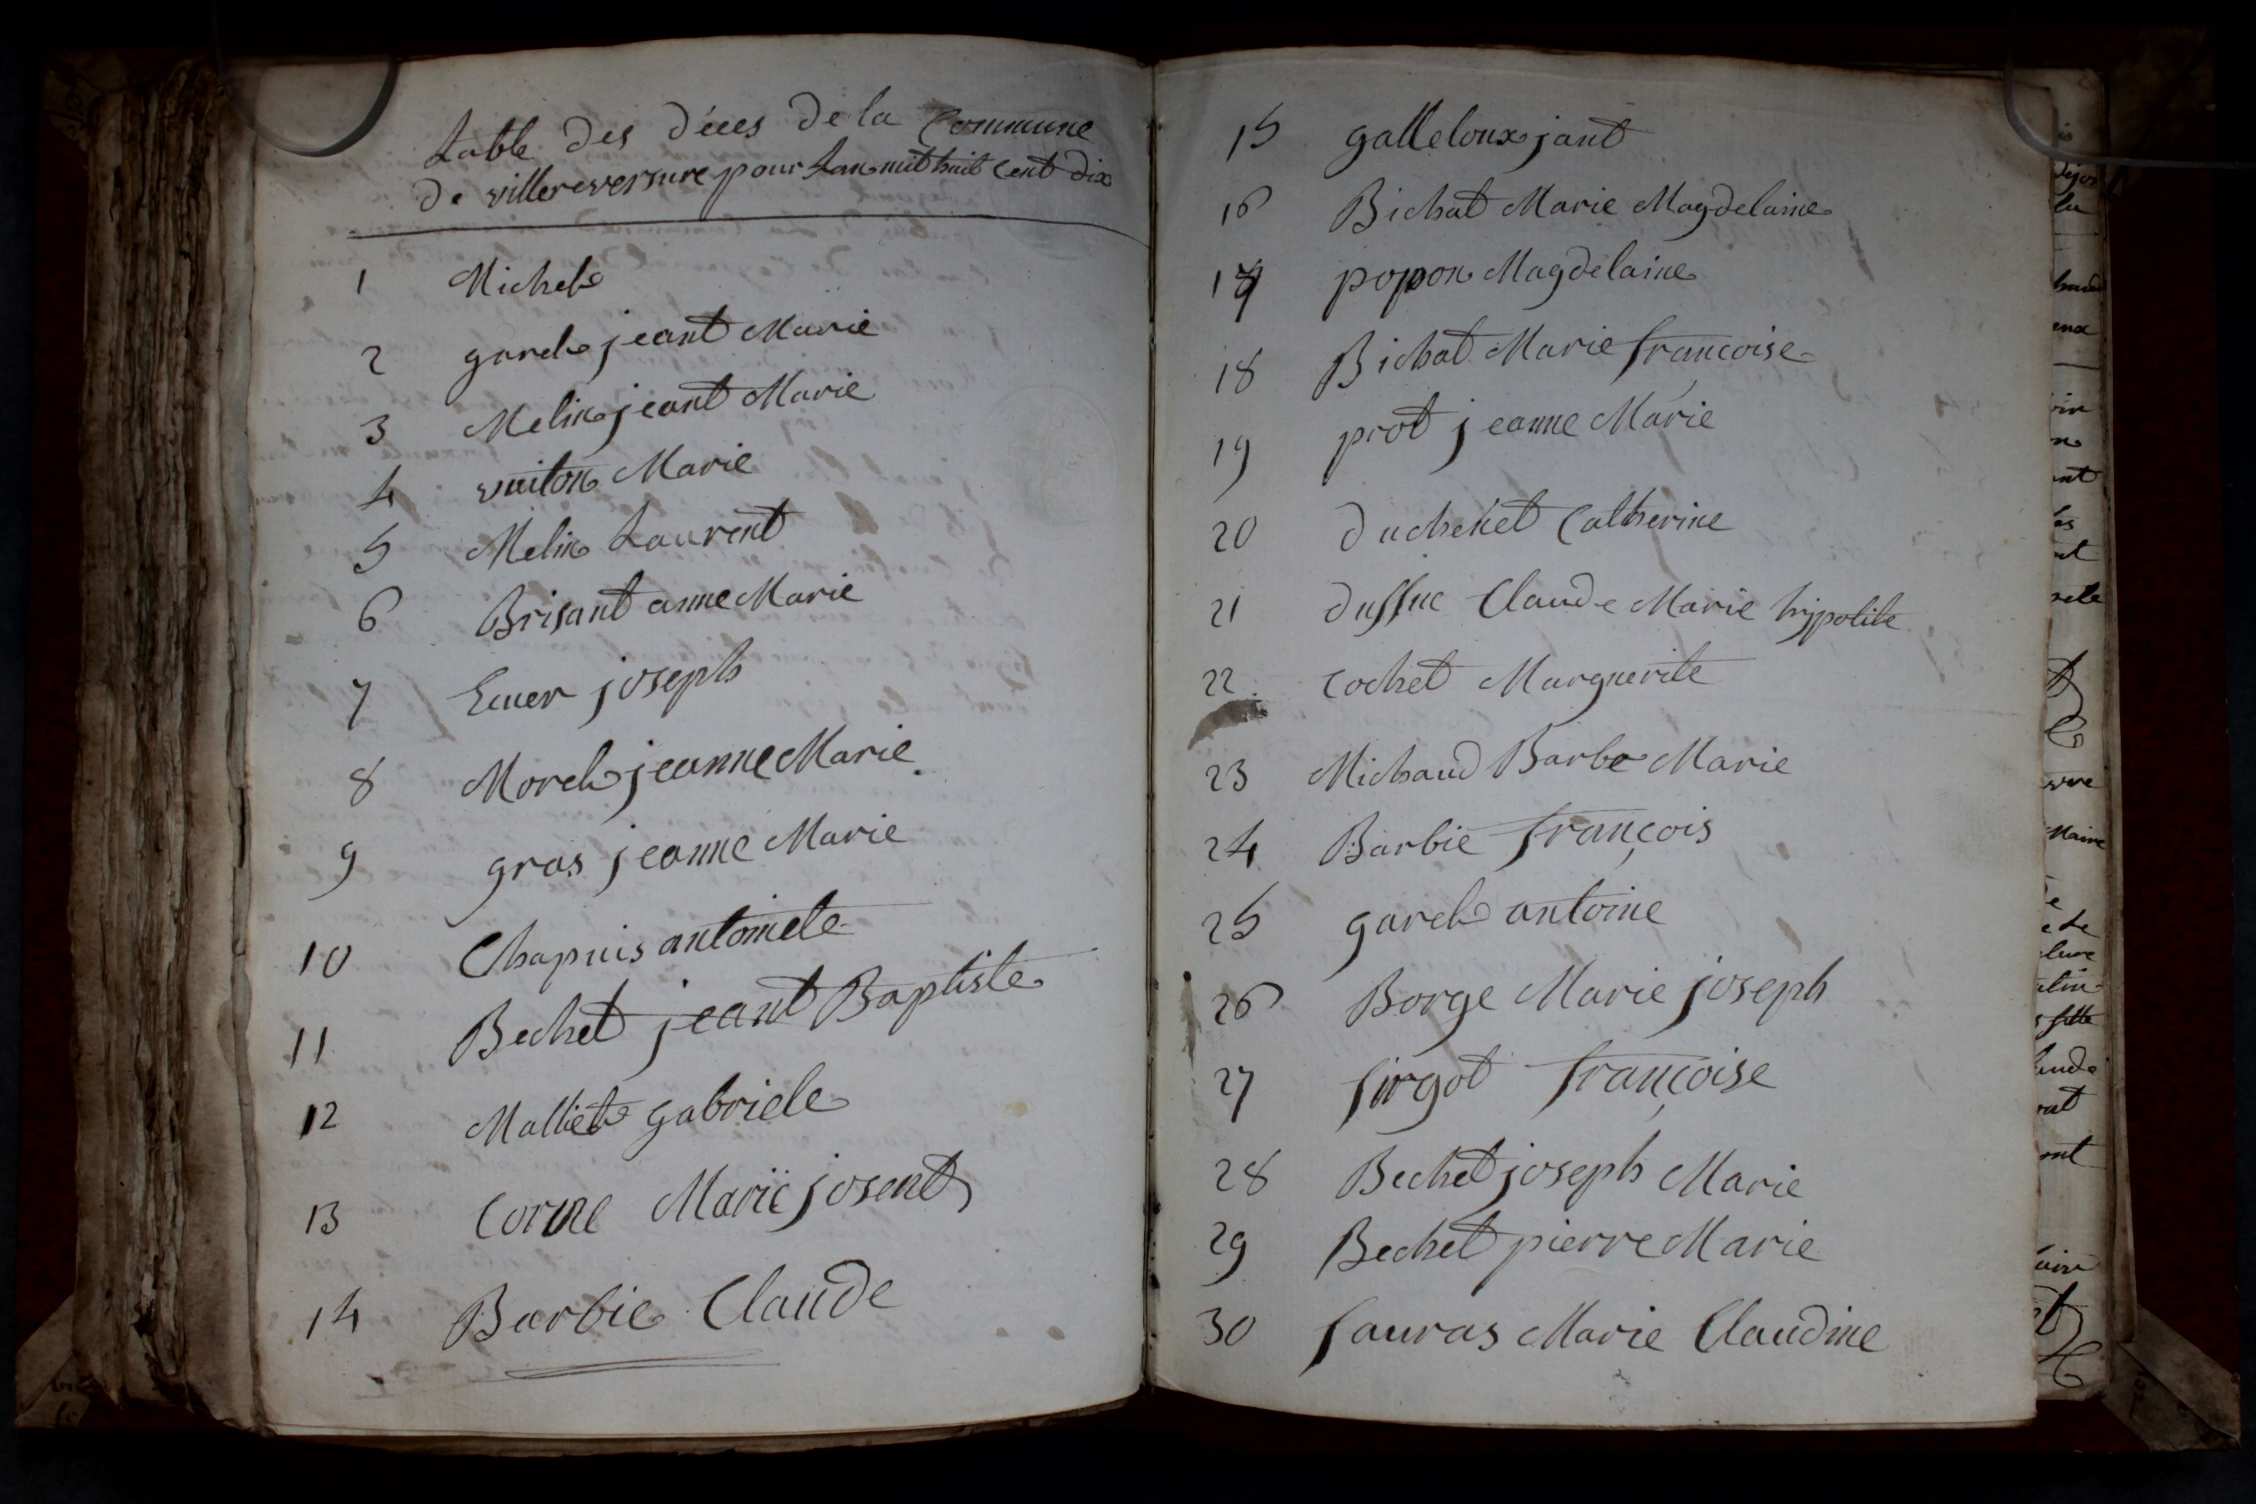 table des déces de la Commune
de villereversure pour lan mil huit cent dix
1 Michel
2 garel jeant Marie
3 Melin jeant Marie
4 vuiton Marie
5 Melin Laurent
6 Brisant anne Marie
7 Ecuer joseph
8 Morel jeanne Marie
9 gras jeanne Marie
10 Chapuis antoinete
11 Bechet jeant Baptiste
12 Malliet gabriele
13 Corne Marie josent
14 Barbie Claude
15 galleloux jant
16 Bichat Marie Magdelaine
17 popon Magdelaine
18 Bichat Marie françoise
19 prot jeanne Marie
20 duchenet Catherine
21 dussuc Claude Marie hippolite
22 Cochet Marguerite
23 Michaud Barbe Marie
24 Barbie françois
25 garel antoine
26 Borge Marie joseph
27 françoise
28 Bechet joseph Marie
29 Bechet pierre Marie
30 fauras Marie Claudine